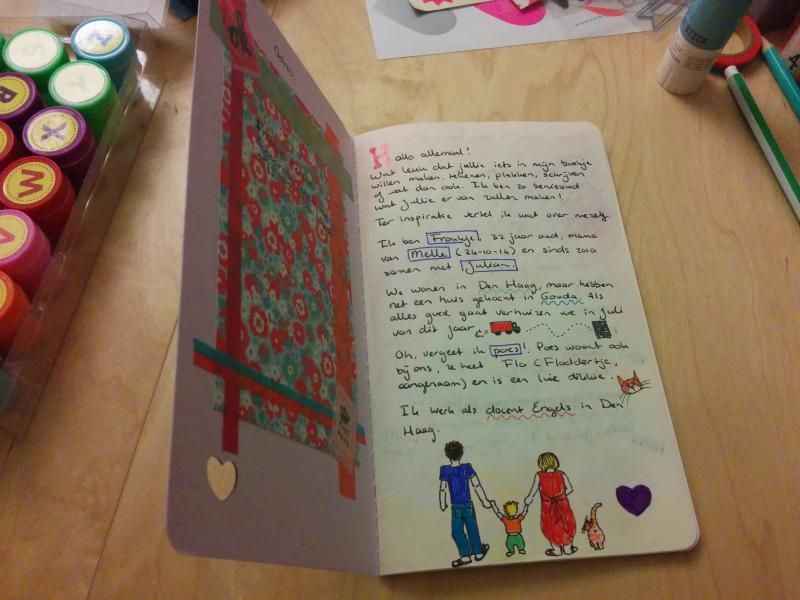 Z
S
Y
X
R
W
V
ok
Adres:
STICK
Hallo allemaal!
Wat leuk dat jullie iets in mijn boekje
willen maken, tekenen, plakken, schrijven
of wat dan ook. Ik ben zo benieuwd
wat jullie er van zullen maken!
Ter inspiratie vertel ik wat over mezelf.
Ik ben Froukje, 32 jaar oud, mama
van Melle (24-10-14) en sinds 2010
samen met Julian.
We wonen in Den Haag, maar hebben
net een huis gekocht in Gouda. Als
alles goed gaat verhuizen we in juli
van dit jaar
Oh, vergeet ik poes! Poes woont ook
bij ons, ze heet Flo (Floddertje,
aangenaam) en is een luie dikkie.
Ik werk als docent Engels in Den
Haag.